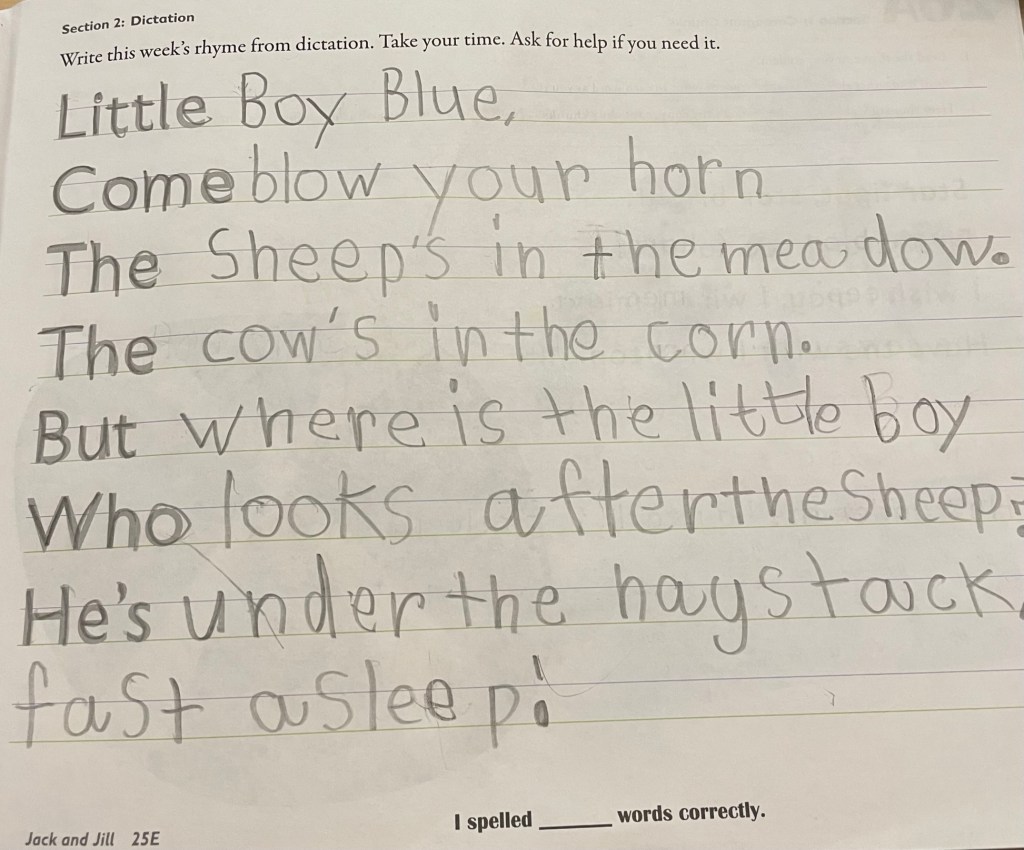 Section 2: Dictation
Write this week's rhyme from dictation. Take your time. Ask for help if you need it.
Little Boy Blue,
Come blow your horn
The Sheep's in the meadow.
The cow's in the corn.
But where is the little boy
Who looks after the Sheep?
He's under the haystack,
fast asleep!
I spelled ______ words correctly.
Jack and Jill 25E